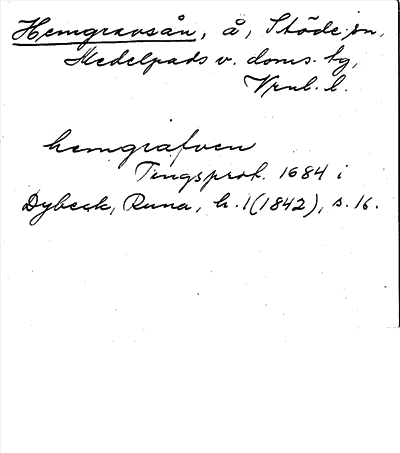 Hemgravsån, å, Stöde sn,
Medelpads v. doms. tg,
Vrnl. l.
hemgrafven
Tingsprot. 1684 i
Dybeck, Runa, h. 1 (1842), s. 16.